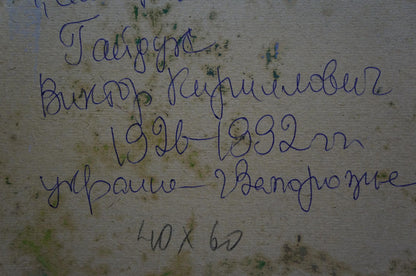 Гайдук
Виктор Кириллович
1926-1992 гг.
украине-Запорожье
40 x 60